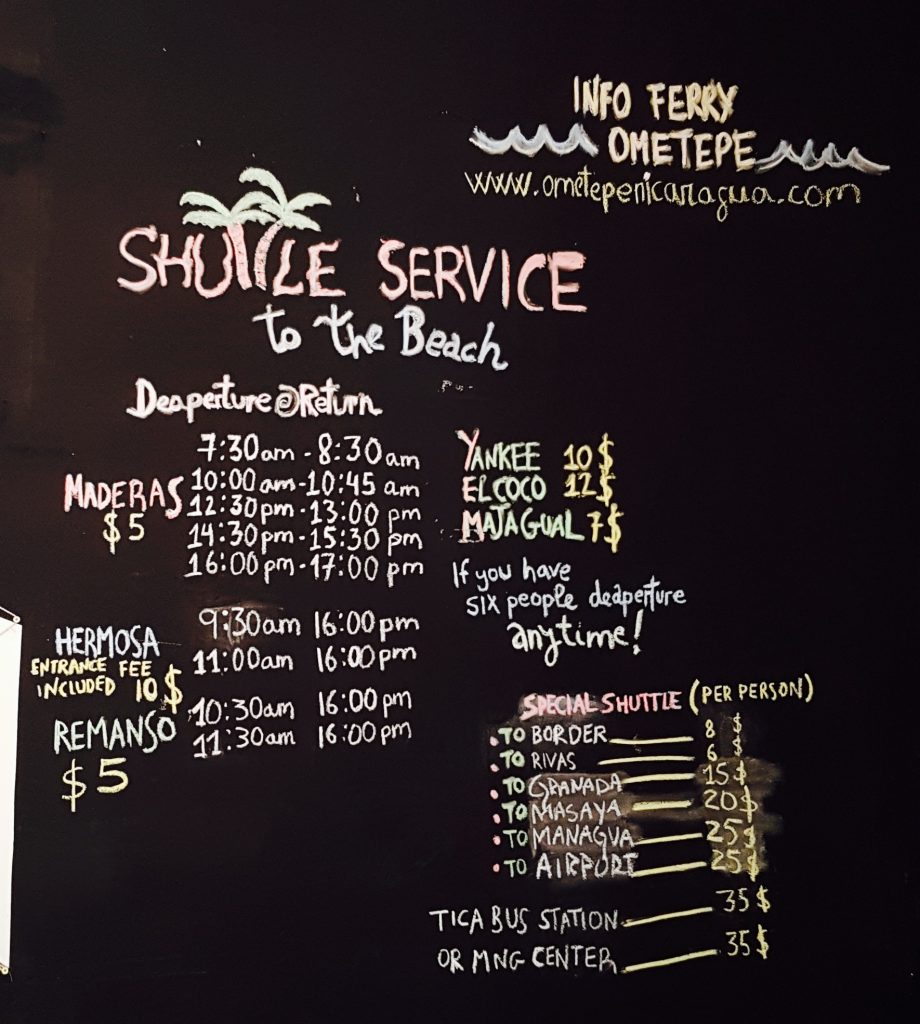 INFO FERRY
OMETEPE
www.ometepenicaragua.com
SHUTTLE SERVICE
to the Beach
Deaperture@Return
MADERAS
$5
7:30am - 8:30am
10:00am - 10:45am
12:30pm - 13:00 pm
14:30pm - 15:30 pm
16:00pm - 17:00 pm
YANKEE 10$
EL COCO 12$
MAJAGUAL 7$
If you have
six people deaperture
anytime!
HERMOSA
ENTRANCE FEE
INCLUDED 10$
9:30am 16:00pm
11:00am 16:00pm
REMANSO
$5
10:30am 16:00pm
11:30am 16:00pm
SPECIAL SHUTTLE (PER PERSON)
. TO BORDER 8 $
. TO RIVAS 6 $
. TO GRANADA 15$
. TO MASAYA 20$
. TO MANAGUA 25$
. TO AIRPORT 25$
TICA BUS STATION 35$
OR MNG CENTER 35$